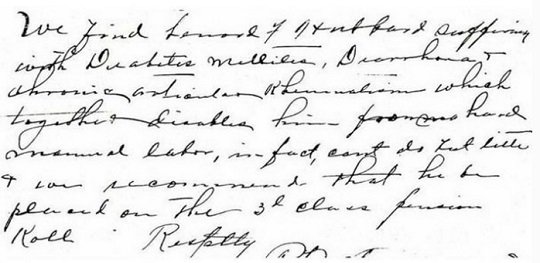 We find Leonard Hubbard suffering
with Diabetes Mellities, Diarrhoea &
chronic articular Rheumatism which
together disables him from hard
manual labor, in fact, cant do but little
& we recommend that he be
placed on the 3d class pension
Roll Resptly